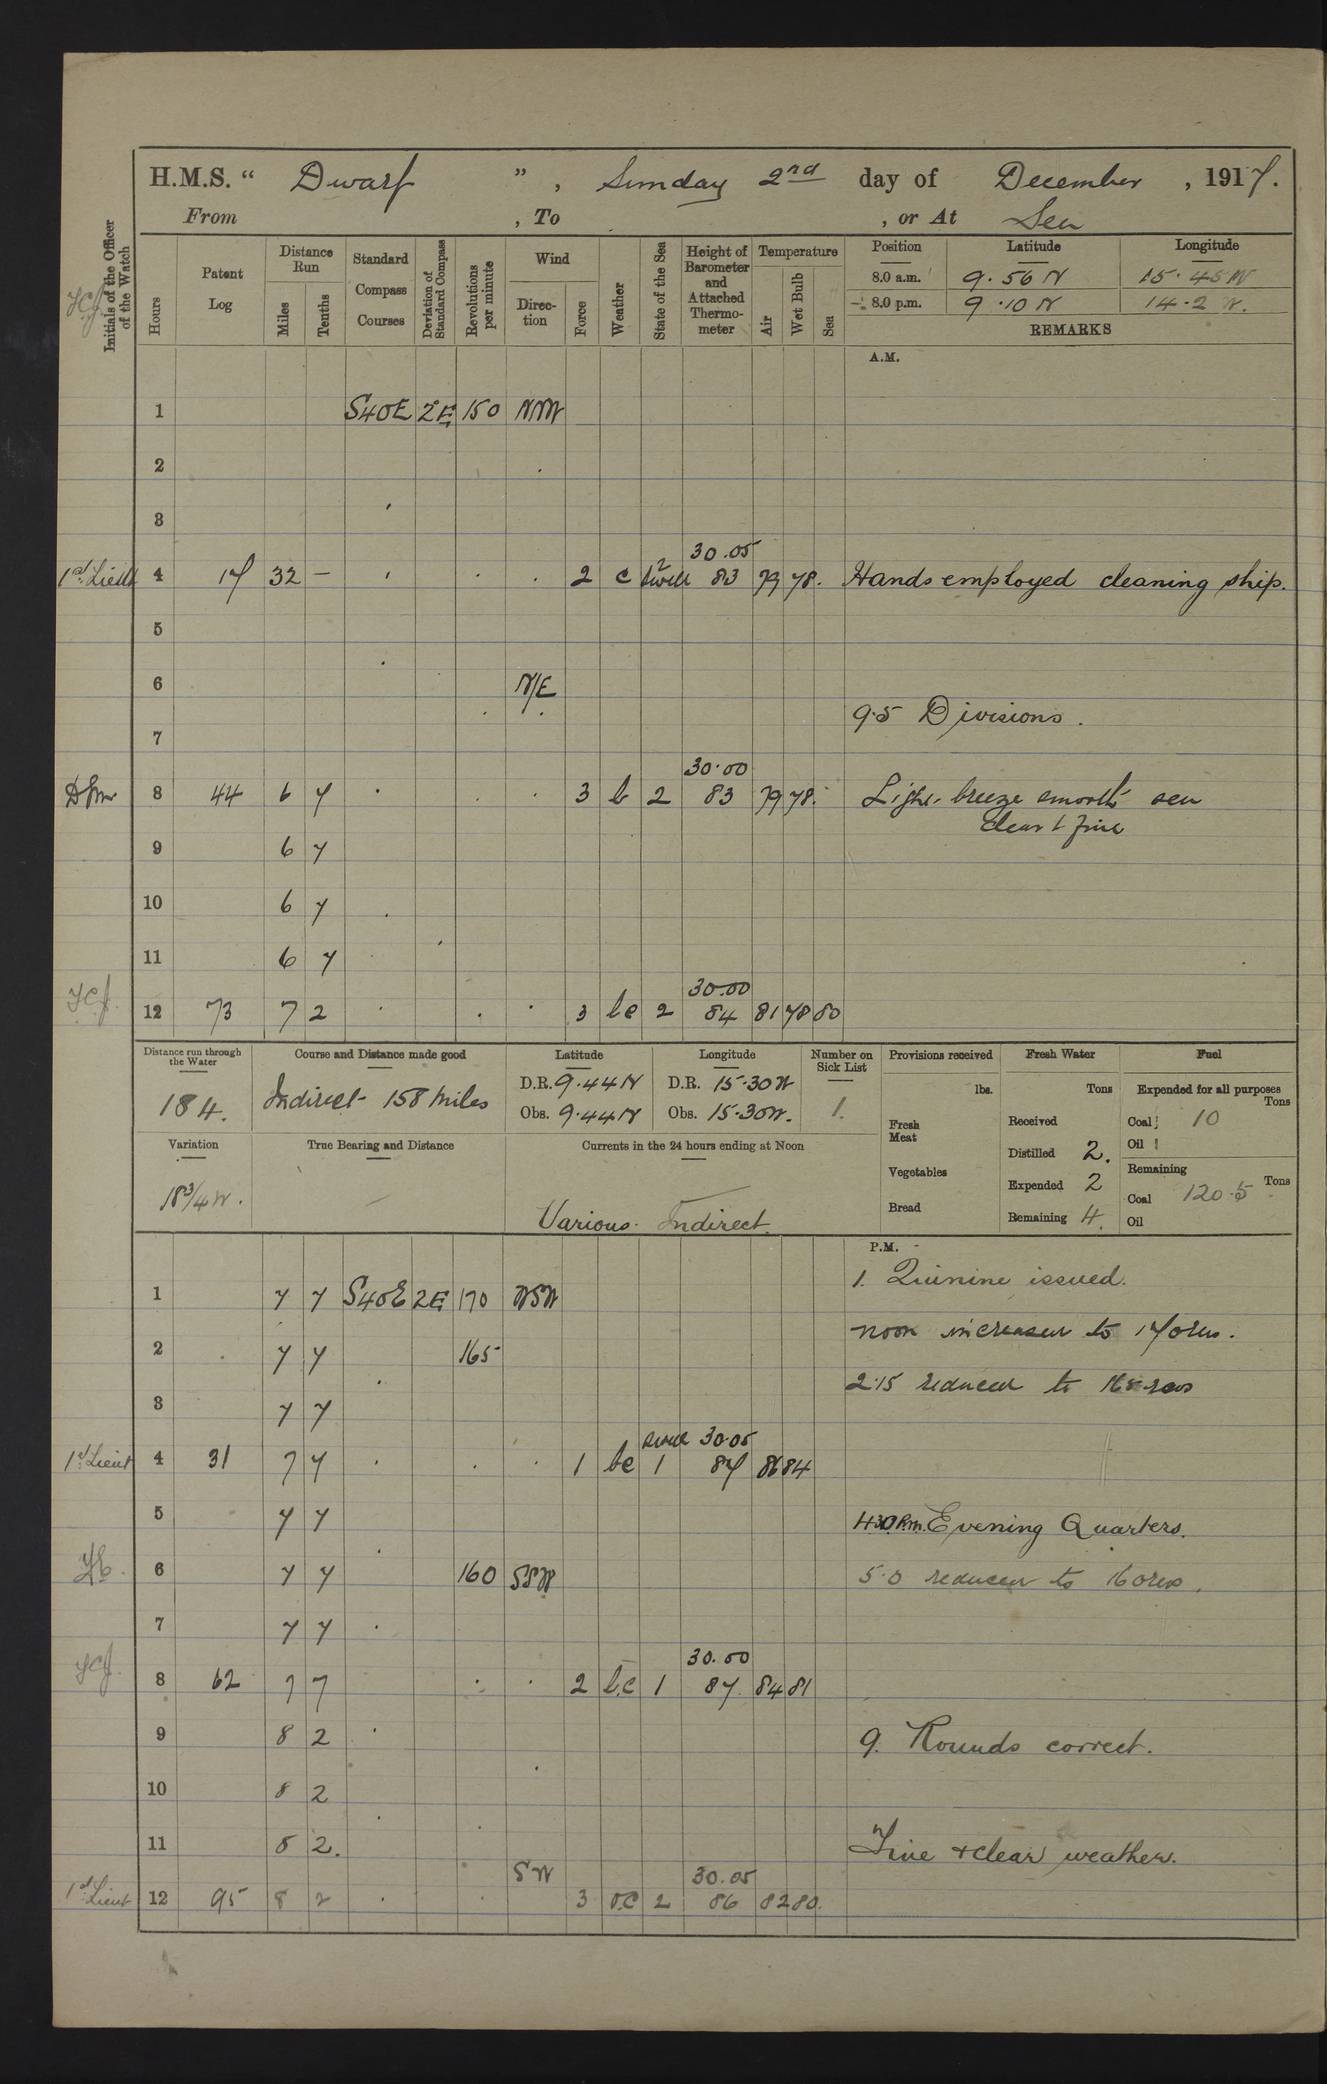 H.M.S. “ Dwarf ” , Sunday 2nd day of December , 1917.
From , To , or At Sea
Initials of the Officer of the Watch
Hours
Patent Log
Distance Run
Miles
Tenths
Standard Compass Courses
Deviation of Standard Compass
Revolutions per minute
Wind
Direction
Force
Weather
State of the Sea
Height of Barometer and Attached Thermometer
Temperature
Air
Wet Bulb
Sea
Position Latitude Longitude
8.0 a.m. 9.56 N 15.45 W
8.0 p.m. 9.10 N 14.2 W.
REMARKS
A.M.
1 S40E 2E 150 NNW
2
3
30.05
1st Lieut 4 17 32 – 2 c 2 swell 83 79 78. Hands employed cleaning ship.
5
6 N/E
9.5 Divisions.
7
30.00
8 44 6 7 3 b 2 83 79 78. Light breeze smooth sea
clear & fine
9 6 7
10 6 7
11 6 7
30.00
12 73 7 2 3 bc 2 84 81 78 80
Distance run through the Water
184.
Course and Distance made good
Indirect 158 miles
Latitude
D.R. 9.44 N
Obs. 9.44 N
Longitude
D.R. 15.30 W
Obs. 15.30 W.
Number on Sick List
1.
Provisions received
lbs.
Fresh Meat
Vegetables
Bread
Fresh Water
Tons
Received
Distilled 2.
Expended 2
Remaining 4.
Fuel
Expended for all purposes
Tons
Coal 10
Oil
Remaining
Tons
Coal 120.5
Oil
Variation
18 3/4 W.
True Bearing and Distance
–
Currents in the 24 hours ending at Noon
Various. Indirect.
P.M.
1. Quinine issued.
1 7 7 S40E 2E 170 WSW
noon increased to 170 revs.
2 7 7 165
2.15 reduced to 165 revs
3 7 7
swell 30.05
1st Lieut 4 31 7 7 1 bc 1 87 86 84
5 7 7 4.30 P.m. Evening Quarters.
6 7 7 160 SSW 5.0 reduced to 160 revs.
7 7 7
30.00
8 62 7 7 2 b.c 1 87 84 81
9 8 2 9. Rounds correct.
10 8 2
11 8 2. Fine & clear weather.
SW 30.05
1st Lieut 12 95 8 2 3 o.c 2 86 82 80.